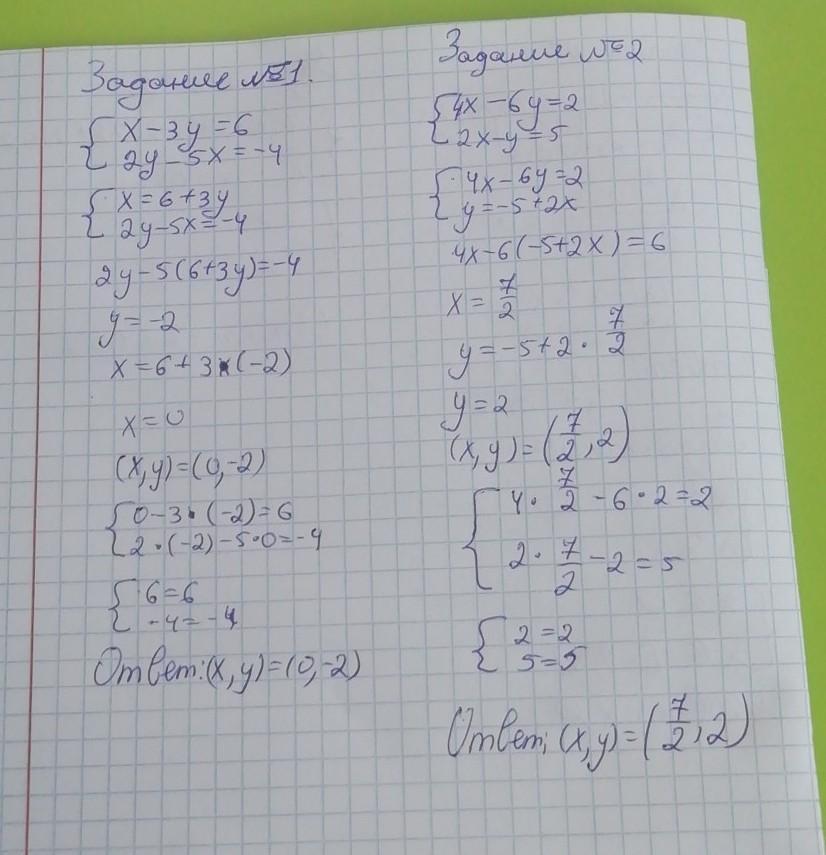 Задание №1.
{ x-3y=6
2y-5x=-4
{ x=6+3y
2y-5x=-4
2y-5(6+3y)=-4
y=-2
x=6+3×(-2)
x=0
(x,y)=(0,-2)
{ 0-3·(-2)=6
2·(-2)-5·0=-4
{ 6=6
-4=-4
Ответ:(x,y)=(0,-2)
Задание №2
{ 4x-6y=2
2x-y=5
{ 4x-6y=2
y=-5+2x
4x-6(-5+2x)=6
x=7/2
y=-5+2·7/2
y=2
(x,y)=(7/2,2)
{ 4·7/2-6·2=2
2·7/2-2=5
{ 2=2
5=5
Ответ; (x,y)=(7/2,2)